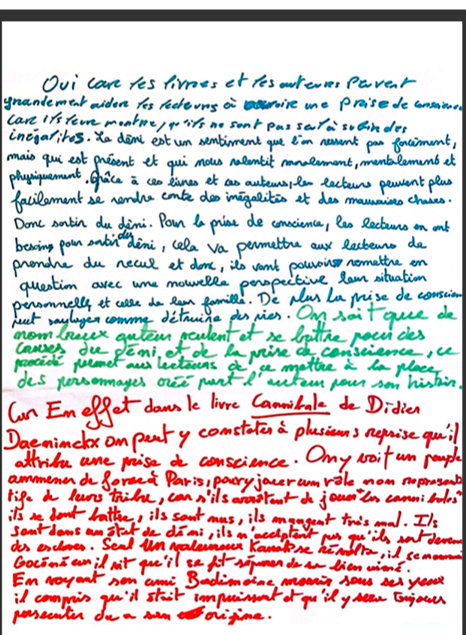 Oui care les livres et les auteures peuvent
grandement aider les lecteurs à une prise de conscience
care ils leve montre, qu'ils ne sont pas seul à subir des
inégalités. Le déni est un sentiment que l'on ressent pas forcément,
mais qui est présent et qui nous ralentit moralement, mentalement et
physiquement, grâce à ces livres et ces auteurs, les lecteurs peuvent plus
facilement se rendre conte des inégalités et des mauvaises choses.
Donc sortir du déni. Pour la prise de conscience, les lecteurs en ont
besoing pour sortir du déni, cela va permettre aux lecteurs de
prendre du recul et donc, ils vont pouvoir remettre en
question avec une nouvelle perspective leur situation
personnelle et celle de leur famille. De plus la prise de conscien
peut soulager comme détruire des vies. On sait que de
nombreux auteur veulent et se battre pour des
causes du déni et de la prise de conscience, ce
procédé permet aux lecteurs de ce mettre à la place
des personnages créé part l'auteur pour son histoir.
Car En effet dans le livre Cannibale de Didier
Daeninckx on peut y constater à plusieurs reprise qu'il
attribu une prise de conscience. On y voit un peuple
ammener de force à Paris, pour y jouer un rôle non représent
tife de leurs tribu, car s'ils arrêtent de jouer "les cannibales"
ils se font battre, ils sont nus, ils mangent très mal. Ils
sont dans un état de déni, ils n'acceptent pas qu'ils sont devenu
des esclaves. Seul Un valeureux Kanak se révolta, il se nomme
Gocéné il qu'il se fit séparer de sa bien aimé.
En voyant son ami Badimoine mourir sous ses yeux
il compris qu'il était impuissant et qu'il y sera toujours
persecuter du a son origine.